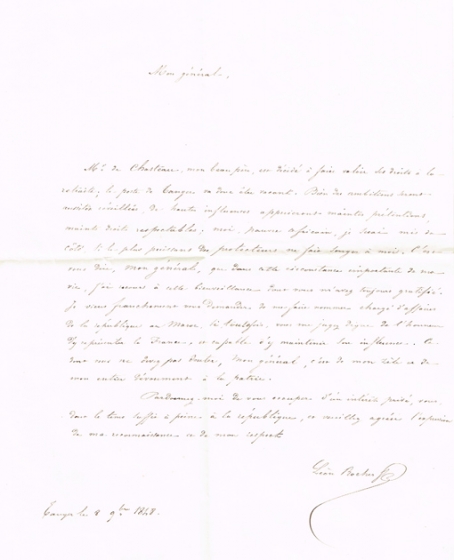 Mon général,
Mr. de Chasteau, mon beau père, est décidé à faire valoir ses droits à la
retraite; le poste de Tanger va donc être vacant. Bien des ambitions sont
éveillées, de hautes influences appuieront maintes prétentions,
maints droits respectables; moi, pauvre africain, je serai mis de
côté si le plus puissant des protecteurs ne fait songer à moi. C'est
vous dire, mon général, que dans cette circonstance importante de ma
vie, j'ai recours à cette bienveillance dont vous m'avez toujours gratifié.
Je viens franchement vous demander de me faire nommer chargé d'affaires
de la république au Maroc, si toutefois, vous me jugez digne de l'honneur
d'y représenter la France, et capable d'y maintenir son influence. Ce
dont vous ne devez pas douter, mon général, c'est de mon zèle et de
mon entier dévouement à la patrie.
Pardonnez-moi de vous occuper d'un intérêt privé, vous
dont le tems suffit à peine à la république, et veuillez agréer l'expression
de ma reconnaissance et de mon respect
Léon Roches
Tanger le 8 9bre 1848.